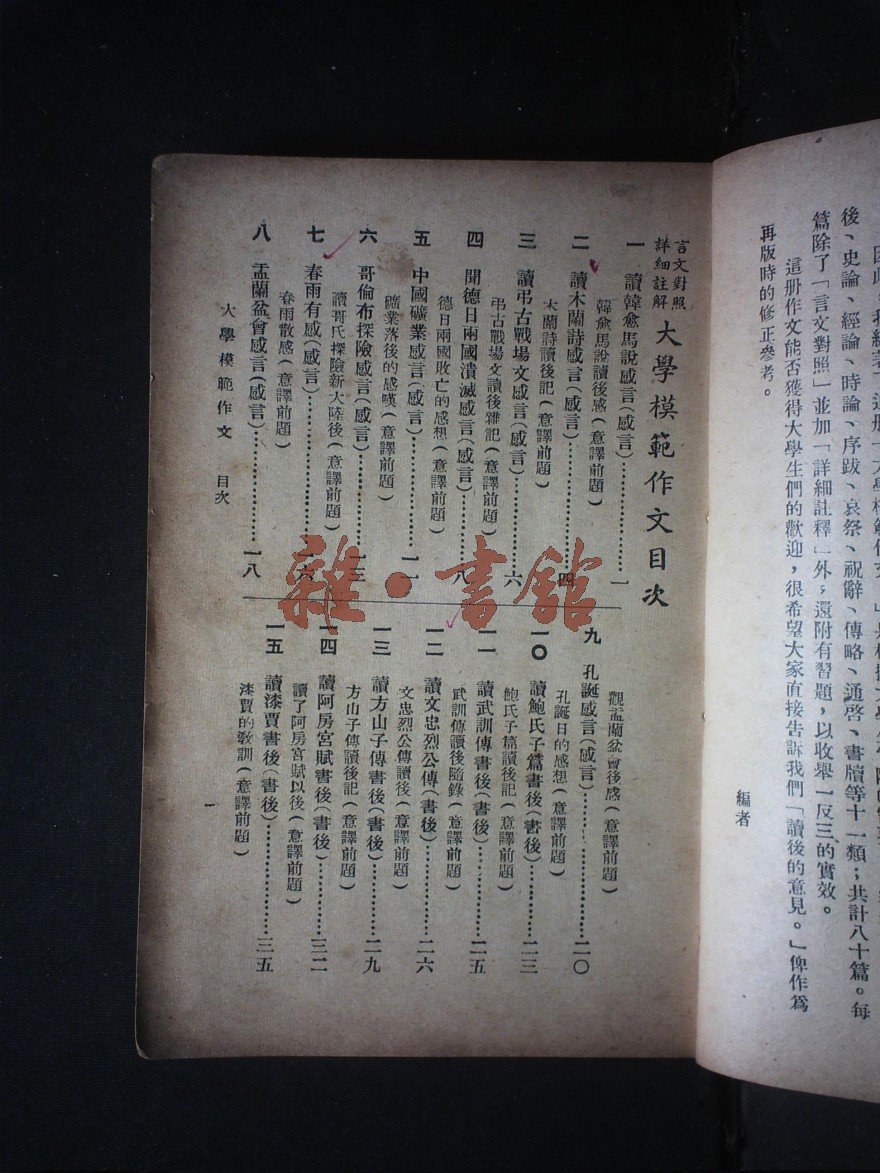 後、史論、經論、時論、序跋、哀祭、祝辭、傳略、通啓、書牘等十一類；共計八十篇。每
篇除了「言文對照」並加「詳細註釋」外，還附有習題，以收舉一反三的實效。
這册作文能否獲得大學生們的歡迎，很希望大家直接告訴我們「讀後的意見。」俾作爲
再版時的修正參考。
編者
言文對照
詳細註解
大學模範作文目次
一 讀韓愈馬說感言(感言)…………一
韓愈馬說讀後感(意譯前題)
二 讀木蘭詩感言(感言)…………四
木蘭詩讀後記(意譯前題)
三 讀弔古戰場文感言(感言)…………六
弔古戰場文讀後雜記(意譯前題)
四 聞德日兩國潰滅感言(感言)…………八
德日兩國敗亡的感想(意譯前題)
五 中國礦業感言(感言)…………一一
礦業落後的感嘆(意譯前題)
六 哥倫布探險感言(感言)…………一三
讀哥氏探險新大陸後(意譯前題)
七 春雨有感(感言)…………一六
春雨散感(意譯前題)
八 盂蘭盆會感言(感言)…………一八
觀盂蘭盆會後感(意譯前題)
九 孔誕感言(感言)…………二〇
孔誕日的感想(意譯前題)
一〇 讀鮑氏子篇書後(書後)…………二三
鮑氏子篇讀後記(意譯前題)
一一 讀武訓傳書後(書後)…………二五
武訓傳讀後隨錄(意譯前題)
一二 讀文忠烈公傳(書後)…………二六
文忠烈公傳讀後(意譯前題)
一三 讀方山子傳書後(書後)…………二九
方山子傳讀後記(意譯前題)
一四 讀阿房宮賦書後(書後)…………三二
讀了阿房宮賦以後(意譯前題)
一五 讀漆賈書後(書後)…………三五
漆賈的教訓(意譯前題)
大學模範作文 目次
一
雜·書館